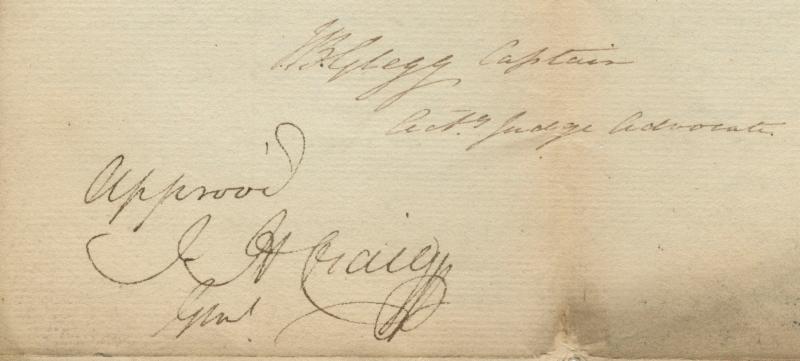 J B Glegg Captain
Act.g Judge Advocate
Approv'd
J H Craig
Genl